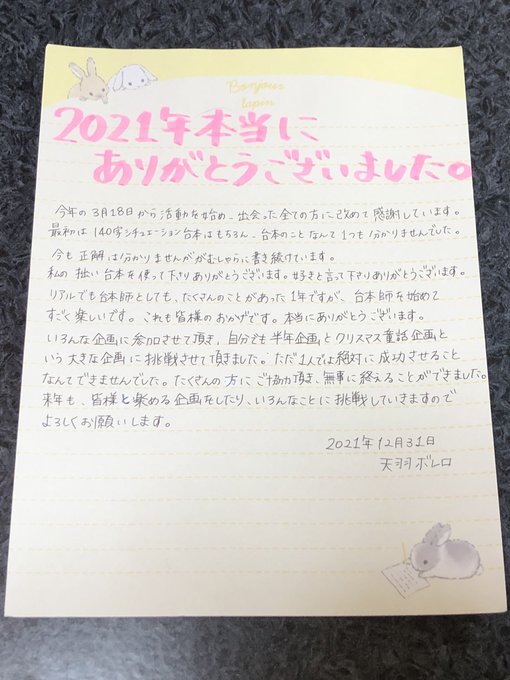 Bonjour
lapin
2021年本当に
ありがとうございました。
今年の3月18日から活動を始め、出会った全ての方に改めて感謝しています。
最初は140字シチュエーション台本はもちろん、台本のことなんて1つも分かりませんでした。
今も正解は分かりませんががむしゃらに書き続けています。
私の拙い台本を使って下さりありがとうございます。好きと言って下さりありがとうございます。
リアルでも台本師としても、たくさんのことがあった1年ですが、台本師を始めて
すごく楽しいです。これも皆様のおかげです。本当にありがとうございます。
いろんな企画に参加させて頂き、自分でも半年企画とクリスマス童話企画と
いう大きな企画に挑戦させて頂きました。ただ1人では絶対に成功させること
なんてできませんでした。たくさんの方にご協力頂き、無事に終えることができました。
来年も、皆様と楽める企画をしたり、いろんなことに挑戦していきますので
よろしくお願いします。
2021年12月31日
天羽ボレロ